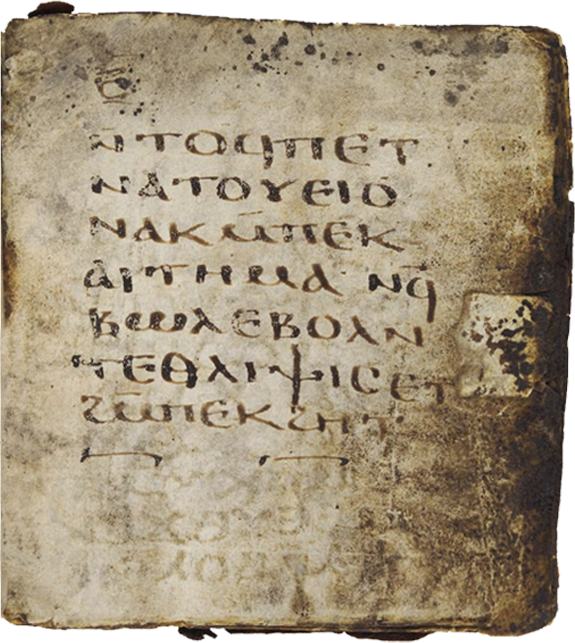 ⲉ̄
ⲛⲧⲟϥⲡⲉⲧ
ⲛⲁⲧⲟⲩⲉⲓⲟ
ⲛⲁⲕⲙ̄ⲡⲉⲕ
ⲁⲓⲧⲏⲙⲁ ⲛϥ̄
ⲃⲱⲗⲉⲃⲟⲗⲛ
ⲧⲉⲑⲗⲓⲯⲓⲥⲉⲧ
ϩⲙ̄ⲡⲉⲕϩⲏⲧ